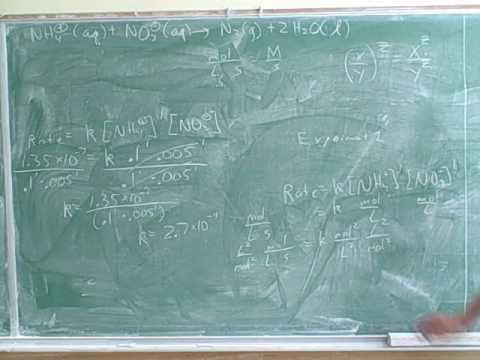 NH₄⊕(aq) + NO₂⊖(aq) → N₂(g) + 2H₂O(l)
mol/L·S = M/S
(x/y)^z = x^z/y^z
Rate = k[NH₄⊕] [NO₂⊖]
1.35×10⁻⁷/.1¹·.005¹ = k .1¹ .005¹/.1¹ ·.005¹
k = 1.35×10⁻⁷/(.1¹ ·.005¹)
k = 2.7×10⁻⁴
Rate = k[NH₄⊕]¹[NO₂⊖]¹
mol/L·S = k mol/L · mol/L
L²/mol² mol/L·S = k mol²/L² · L²/mol²